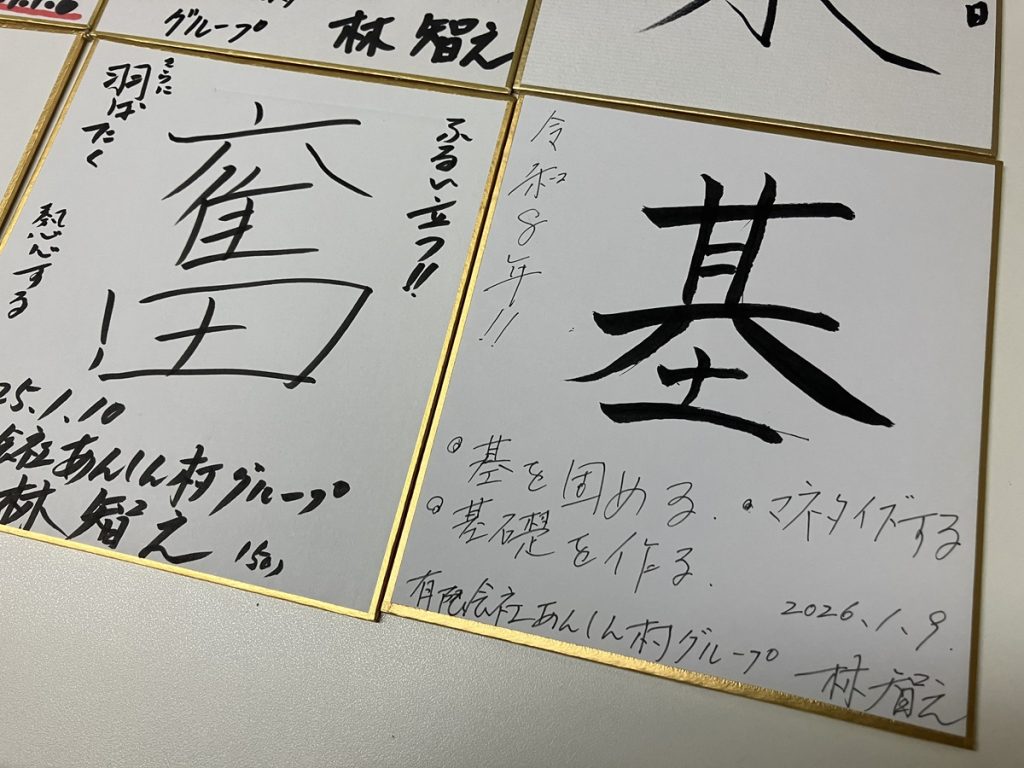 グループ
林智え
日
さらに
羽ばたく
奮
ふるい立つ!!
懸心する
25.1.10
会社あんしん村グループ
林智え
令和8年!!
基
・基を固める.
・基礎を作る.
・マネタイズする
2026.1.9.
有限会社あんしん村グループ
林智え